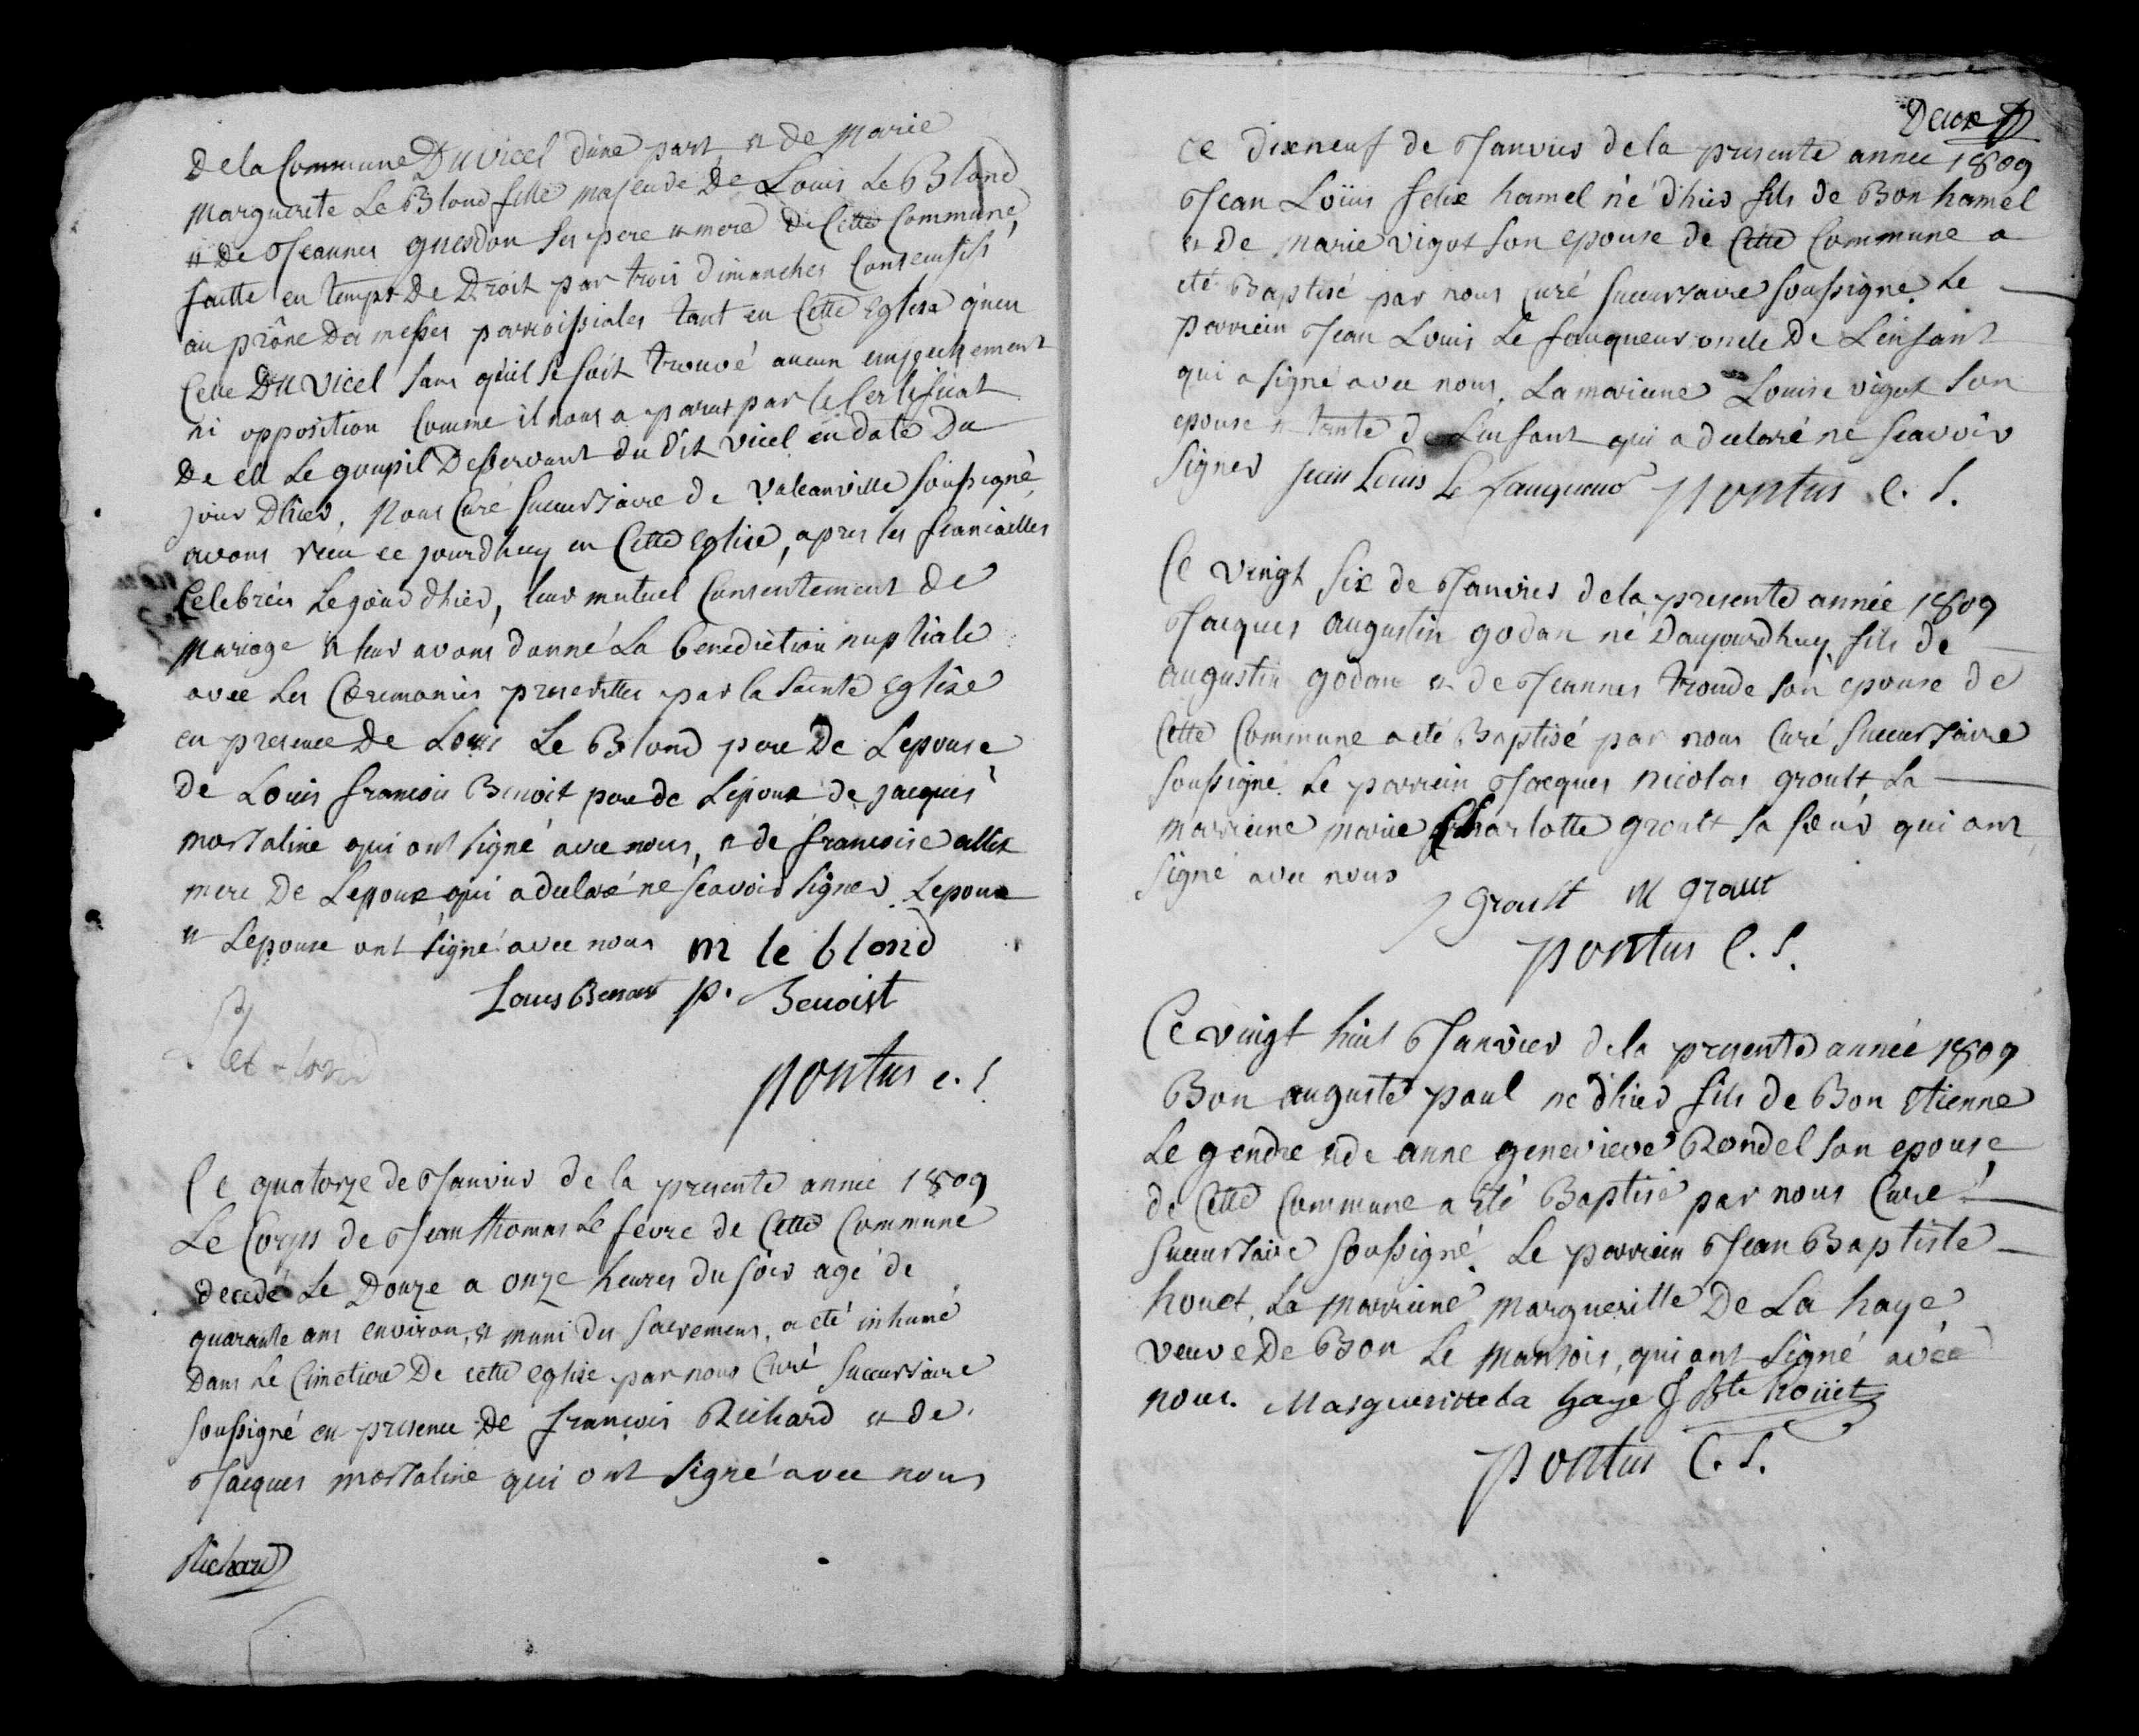 De la Commune Du vicel d'une part, et de Marie
Marguerite Le Blond fille majeure De Louis Le Blond
et De Jeanne guesdon ses pere et mere de Cette Commune,
faitte en temps De Droit par trois dimanches Consecutifs
au prône Des messes parroissiales tant en Cette Eglise qu'en
Celle Du vicel sans qu'il se soit trouvé aucun empechement
ni opposition Comme il nous a parut par le Certificat
De M Le goupil Desservant du dit vicel en date Du
jour D'hier, Nous Curé succursaire de Valcanville soussigné
avons recu ce jourdhuy en Cette Eglise, apres les fiancailles
Celebrées Le jour d'hier, leur mutuel Consentement De
Mariage et leur avons donné La benediction nuptiale
avec Les Ceremonies prescrittes par la Sainte Eglise
en presence De Louis Le Blond pere De L'epouse,
de Louis francois Benoit pere de L'epoux de jacques
mortaline qui ont signé avec nous, et de francoise allix
mere De L'epoux qui a declaré ne scavoir signer. L'epoux
et L'epouse ont signé avec nous m le blond
Louis Benoist p. Benoist
pontus c. s.
Ce quatorze de Janvier de la presente année 1809
Le Corps de Jean thomas Le fevre de Cette Commune
decedé Le Douze a onze heures du soir agé de
quarante ans environ, et muni des sacremens, a été inhumé
Dans Le Cimetiere De cette eglise par nous Curé succursaire
soussigné en presence De francois Richard et de
Jacques mortaline qui ont signé avec nous
Richard
Deux
Ce dixneuf de Janvier de la presente année 1809
Jean Loüis felix hamel né d'hier fils de Bon hamel
et De Marie vigot son epouse de Cette Commune a
eté Baptisé par nous curé succursaire soussigné. Le
parrein Jean Louis Le fauqueur oncle De L'enfant
qui a signé avec nous. La mariene Louise vigot son
epouse et tante de L'enfant qui a declaré ne scavoir
signer jean Louis Le fauqueur pontus C. S.
Ce vingt six de Janvier de la presente année 1809
Jacques augustin godan né D'aujourdhuy fils de
augustin godan et de Jeanne troude son epouse de
Cette Commune a eté Baptisé par nous Curé succursaire
soussigné. Le parrein Jacques Nicolas groult, La
marriene marie Charlotte groult sa soeur qui ont
signé avec nous
J groult M groult
pontus C. S.
Ce vingt huit Janvier de la presente année 1809
Bon auguste paul né d'hier fils de Bon Etienne
Le gendre et de anne genevieve Rondel son epouse
de Cette Commune a été Baptisé par nous Curé
succursaire soussigné. Le parrein Jean Baptiste
houet, La marriene margueritte De La haye
veuve De Bon Le Mansois, qui ont signé avec
nous. Margueritte la haye J Bte hoüet
pontus C. S.